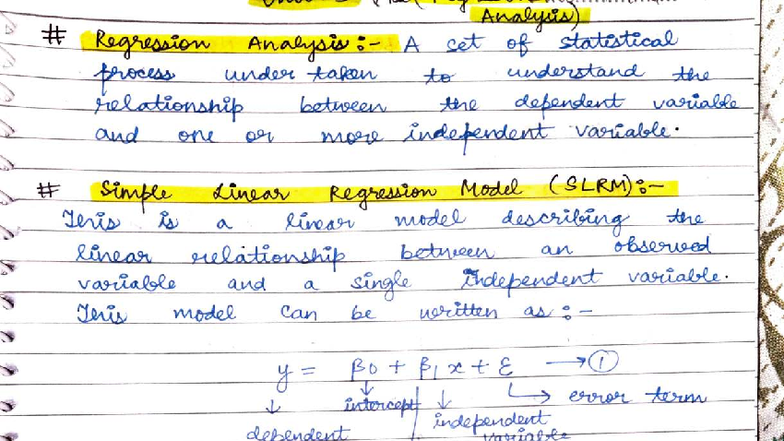 Analysis)
# Regression Analysis :- A set of statistical
process under taken to understand the
relationship between the dependent variable
and one or more independent variable.
# Simple Linear Regression Model (SLRM):-
This is a linear model describing the
linear relationship between an observed
variable and a single independent variable.
This model can be written as :-
y = β0 + β1 x + ε → ①
intercept → error term
dependent independent
variable